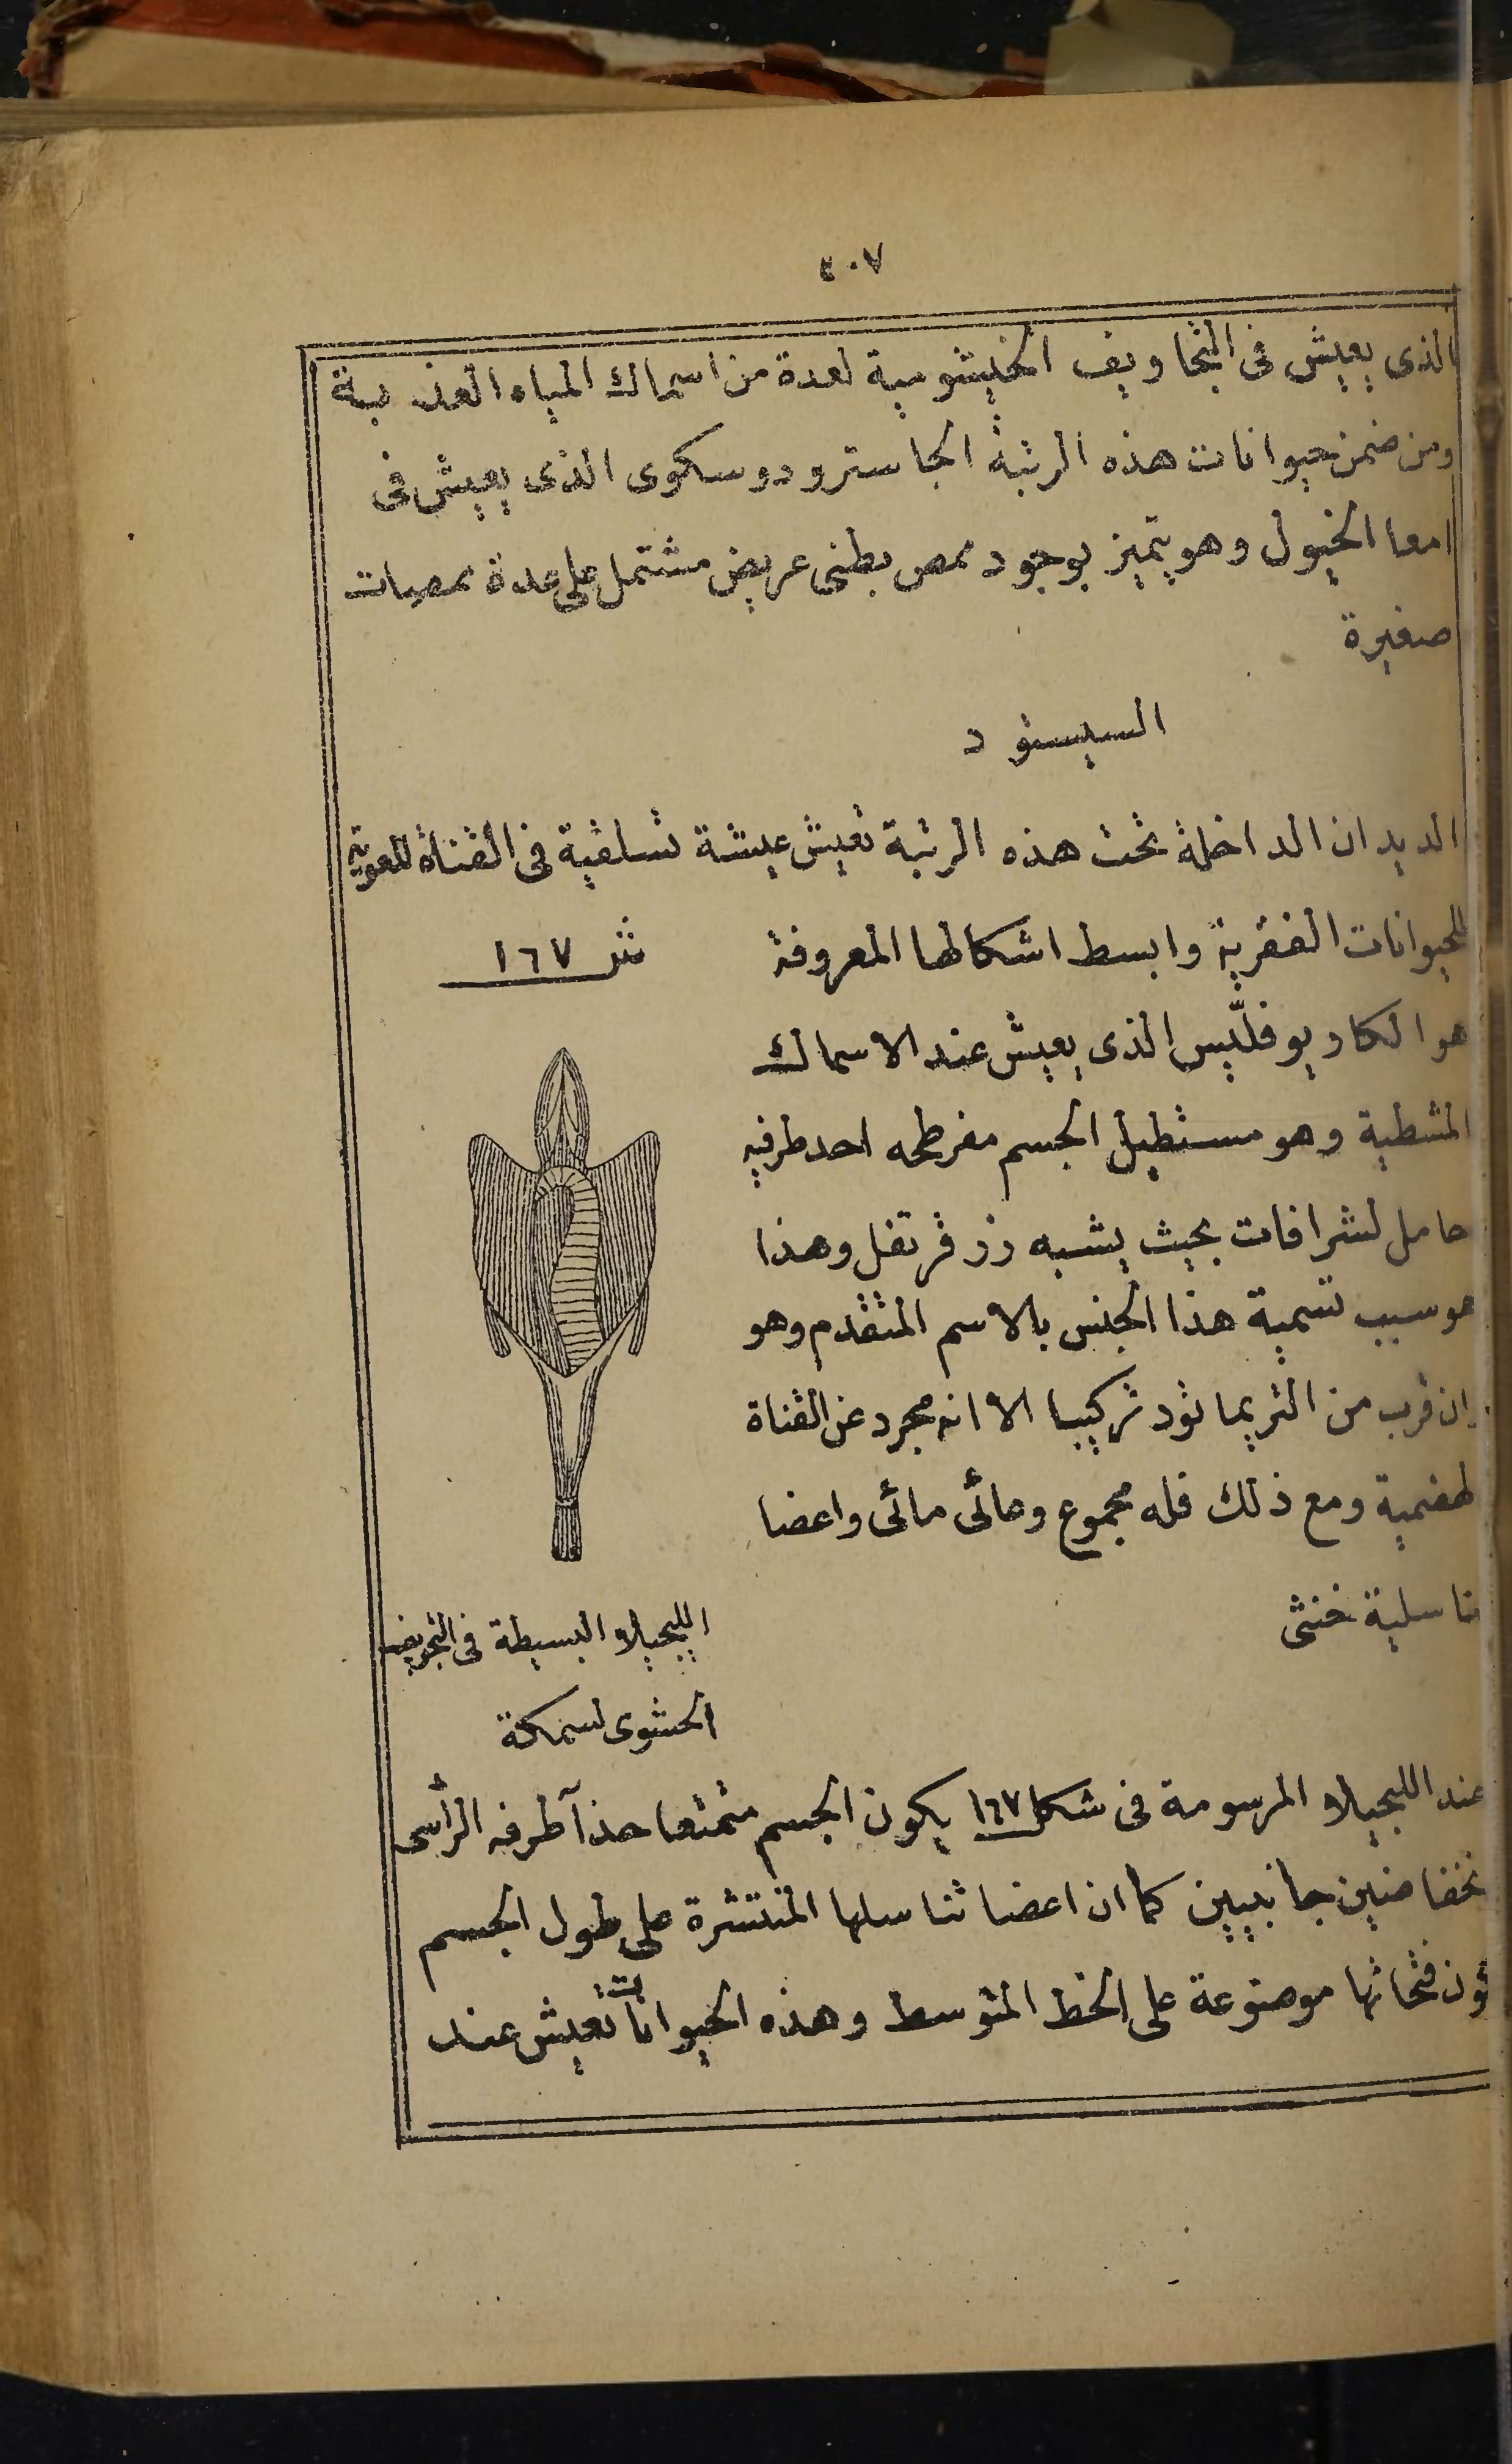 ٤٠٧
الذى يعيش فى التجاويف الخيشومية لعدة من اسماك المياه العذبة
ومن ضمن حيوانات هذه الرتبة الجاسترودوسكوى الذى يعيش فى
امعا الخيول وهو يتميز بوجود ممص بطنى عريض مشتمل على عدة ممصات
صغيرة
السيستود
الديدان الداخلة تحت هذه الرتبة تعيش عيشة تسلقية فى القناة المعوية
للحيوانات الفقرية وابسط اشكالها المعروفة
شكل ١٦٧
هو الكاريوفلّيس الذى يعيش عند الاسماك
المشطية وهو مستطيل الجسم مفرطحه احد طرفيه
حامل لشرافات بحيث يشبه زر قرنفل وهذا
هو سبب تسمية هذا الجنس بالاسم المتقدم وهو
وان قرب من التريماتود تركيبا الا انه مجرد عن القناة
الهضمية ومع ذلك فله مجموع وعائى مائى واعضا
تناسلية خنثى
الليجيلا البسيطة فى التجويف
الحشوى لسمكة
عند الليجيلا المرسومة فى شكل ١٦٧ يكون الجسم متمتعا حذآ طرفه الرأسى
نخفاضين جانبيين كما ان اعضا تناسلها المنتشرة على طول الجسم
فتحاتها موضوعة على الخط المتوسط وهذه الحيوانات تعيش عند